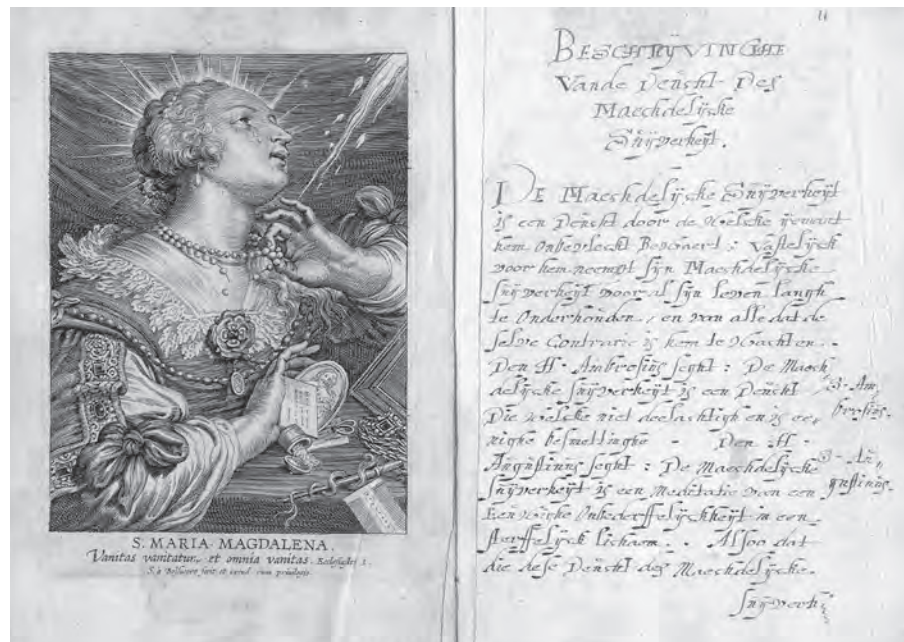 S. MARIA MAGDALENA.
Vanitas vanitatum, et omnia vanitas. Ecclesiastes 1.
S. à Bolswert fecit et excud. cum privilegio.
11
BESCHRŸVINGHE
Vande Deucht Des
Maechdelÿcke
Suÿverheÿt.
DE Maechdelÿcke Suÿverheÿt
is een Deucht door de welcke ÿemant
hem onbevleckt Bewaert: Vastelÿck
voor hem neempt sÿn Maechdelÿcke
suÿverheÿt voor al sÿn leven langh
te Onderhouden, en van alle dat de
selve Contrarie is hem te Wachten.
Den H. Ambrosius seght: De Maech
delÿcke suÿverheÿt is een Deucht
Die welcke niet deelachtigh en is ee,
nighe besmettinghe - Den H.
Augustinus seght: De Maechdelÿcke
suÿverheÿt is een Meditatie van een
Eeuwighe Onbederffelÿckheÿt in een
sterffelÿck lichaem. Alsoo dat
die dese Deucht des Maechdelÿcke.
suÿverh
S. Am,
brosius.
S. Au,
gustinus.